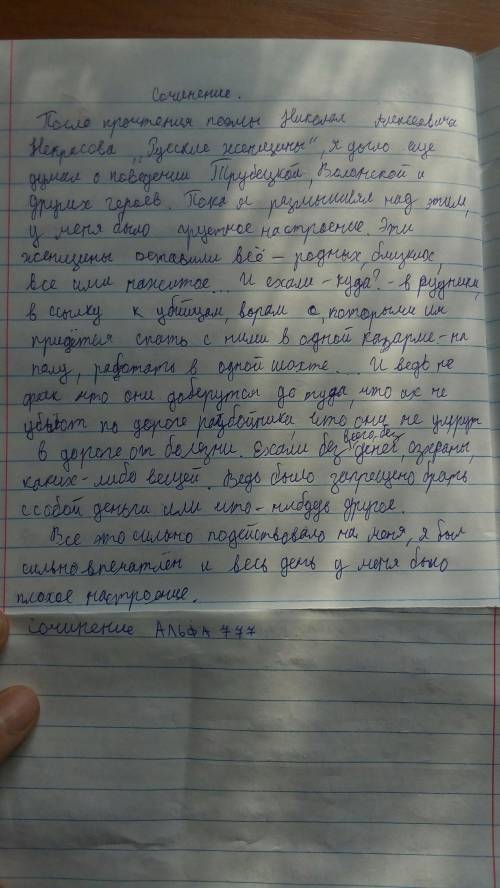 Сочинение.
После прочтения поэмы Николая Алексеевича
Некрасова "Русские женщины", я долго еще
думал о поведении Трубецкой, Волонской и
других героев. Пока я размышлял над этим,
у меня было грустное настроение. Эти
женщины оставили всё – родных, близких,
все ими нажитое... И ехали – куда? – в рудники,
в ссылку к убийцам, ворам с, которыми им
придётся спать с ними в одной казарме – на
полу, работать в одной шахте... И ведь не
факт что они доберутся до туда, что их не
убьют по дороге разбойники, что они не умрут
в дороге от болезни. Ехали без всего, без денег, охраны,
каких-либо вещей. Ведь было запрещено брать
с собой деньги или что-нибудь другое.
Все это сильно подействовало на меня, я был
сильно впечатлён и весь день у меня было
плохое настроение.
Сочинение АЛЬФА 777